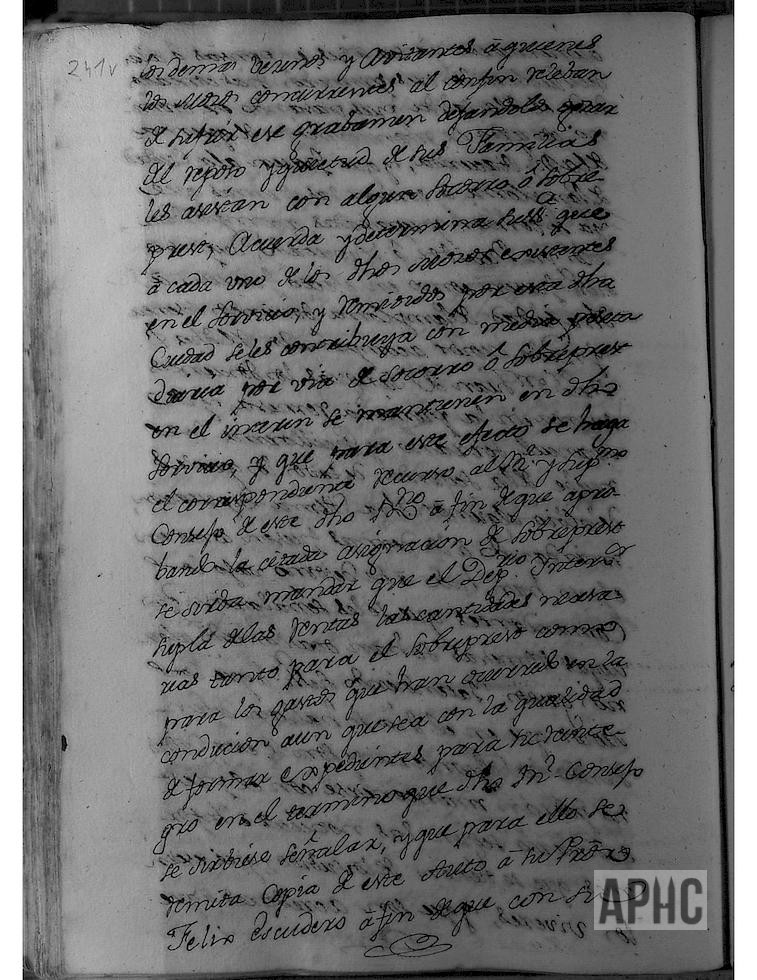 241v
los demas vecinos y avitantes á quienes
los Mozos concurrentes al confin relevan
de sufrir ese grabamen dejandolos gozar
del reposo y quietud de sus Familias
les asistan con algun Socorro ó sobre
prest, Acuerda y determina su Sª que
á cada uno de los dhos Mozos existentes
en el servicio, y remitidos por esta dha
Ciudad se les contribuya con media peseta
diaria por via de Socorro ó Sobreprest
en el interin se mantienen en dho
servicio, y que para este efecto se haga
el correspondiente recurso al Rl y Supmo
Consejo de este dho Rno á fin de que apro-
bando la citada asignacion de sobreprest
se sirva mandar que el Deprio Interdor
supla de las rentas las cantidades necesa-
rias tanto para el sobreprest como
para los gastos que han ocurrido en la
conducion aun que sea con la qualidad
de formar expedientes para su reinte-
gro en el termino que dho Rl Consejo
se sirbiese señalar, y que para ello se
remita Copia de este Auto á su Pror
Felix Escudero á fin de que con su
APHC